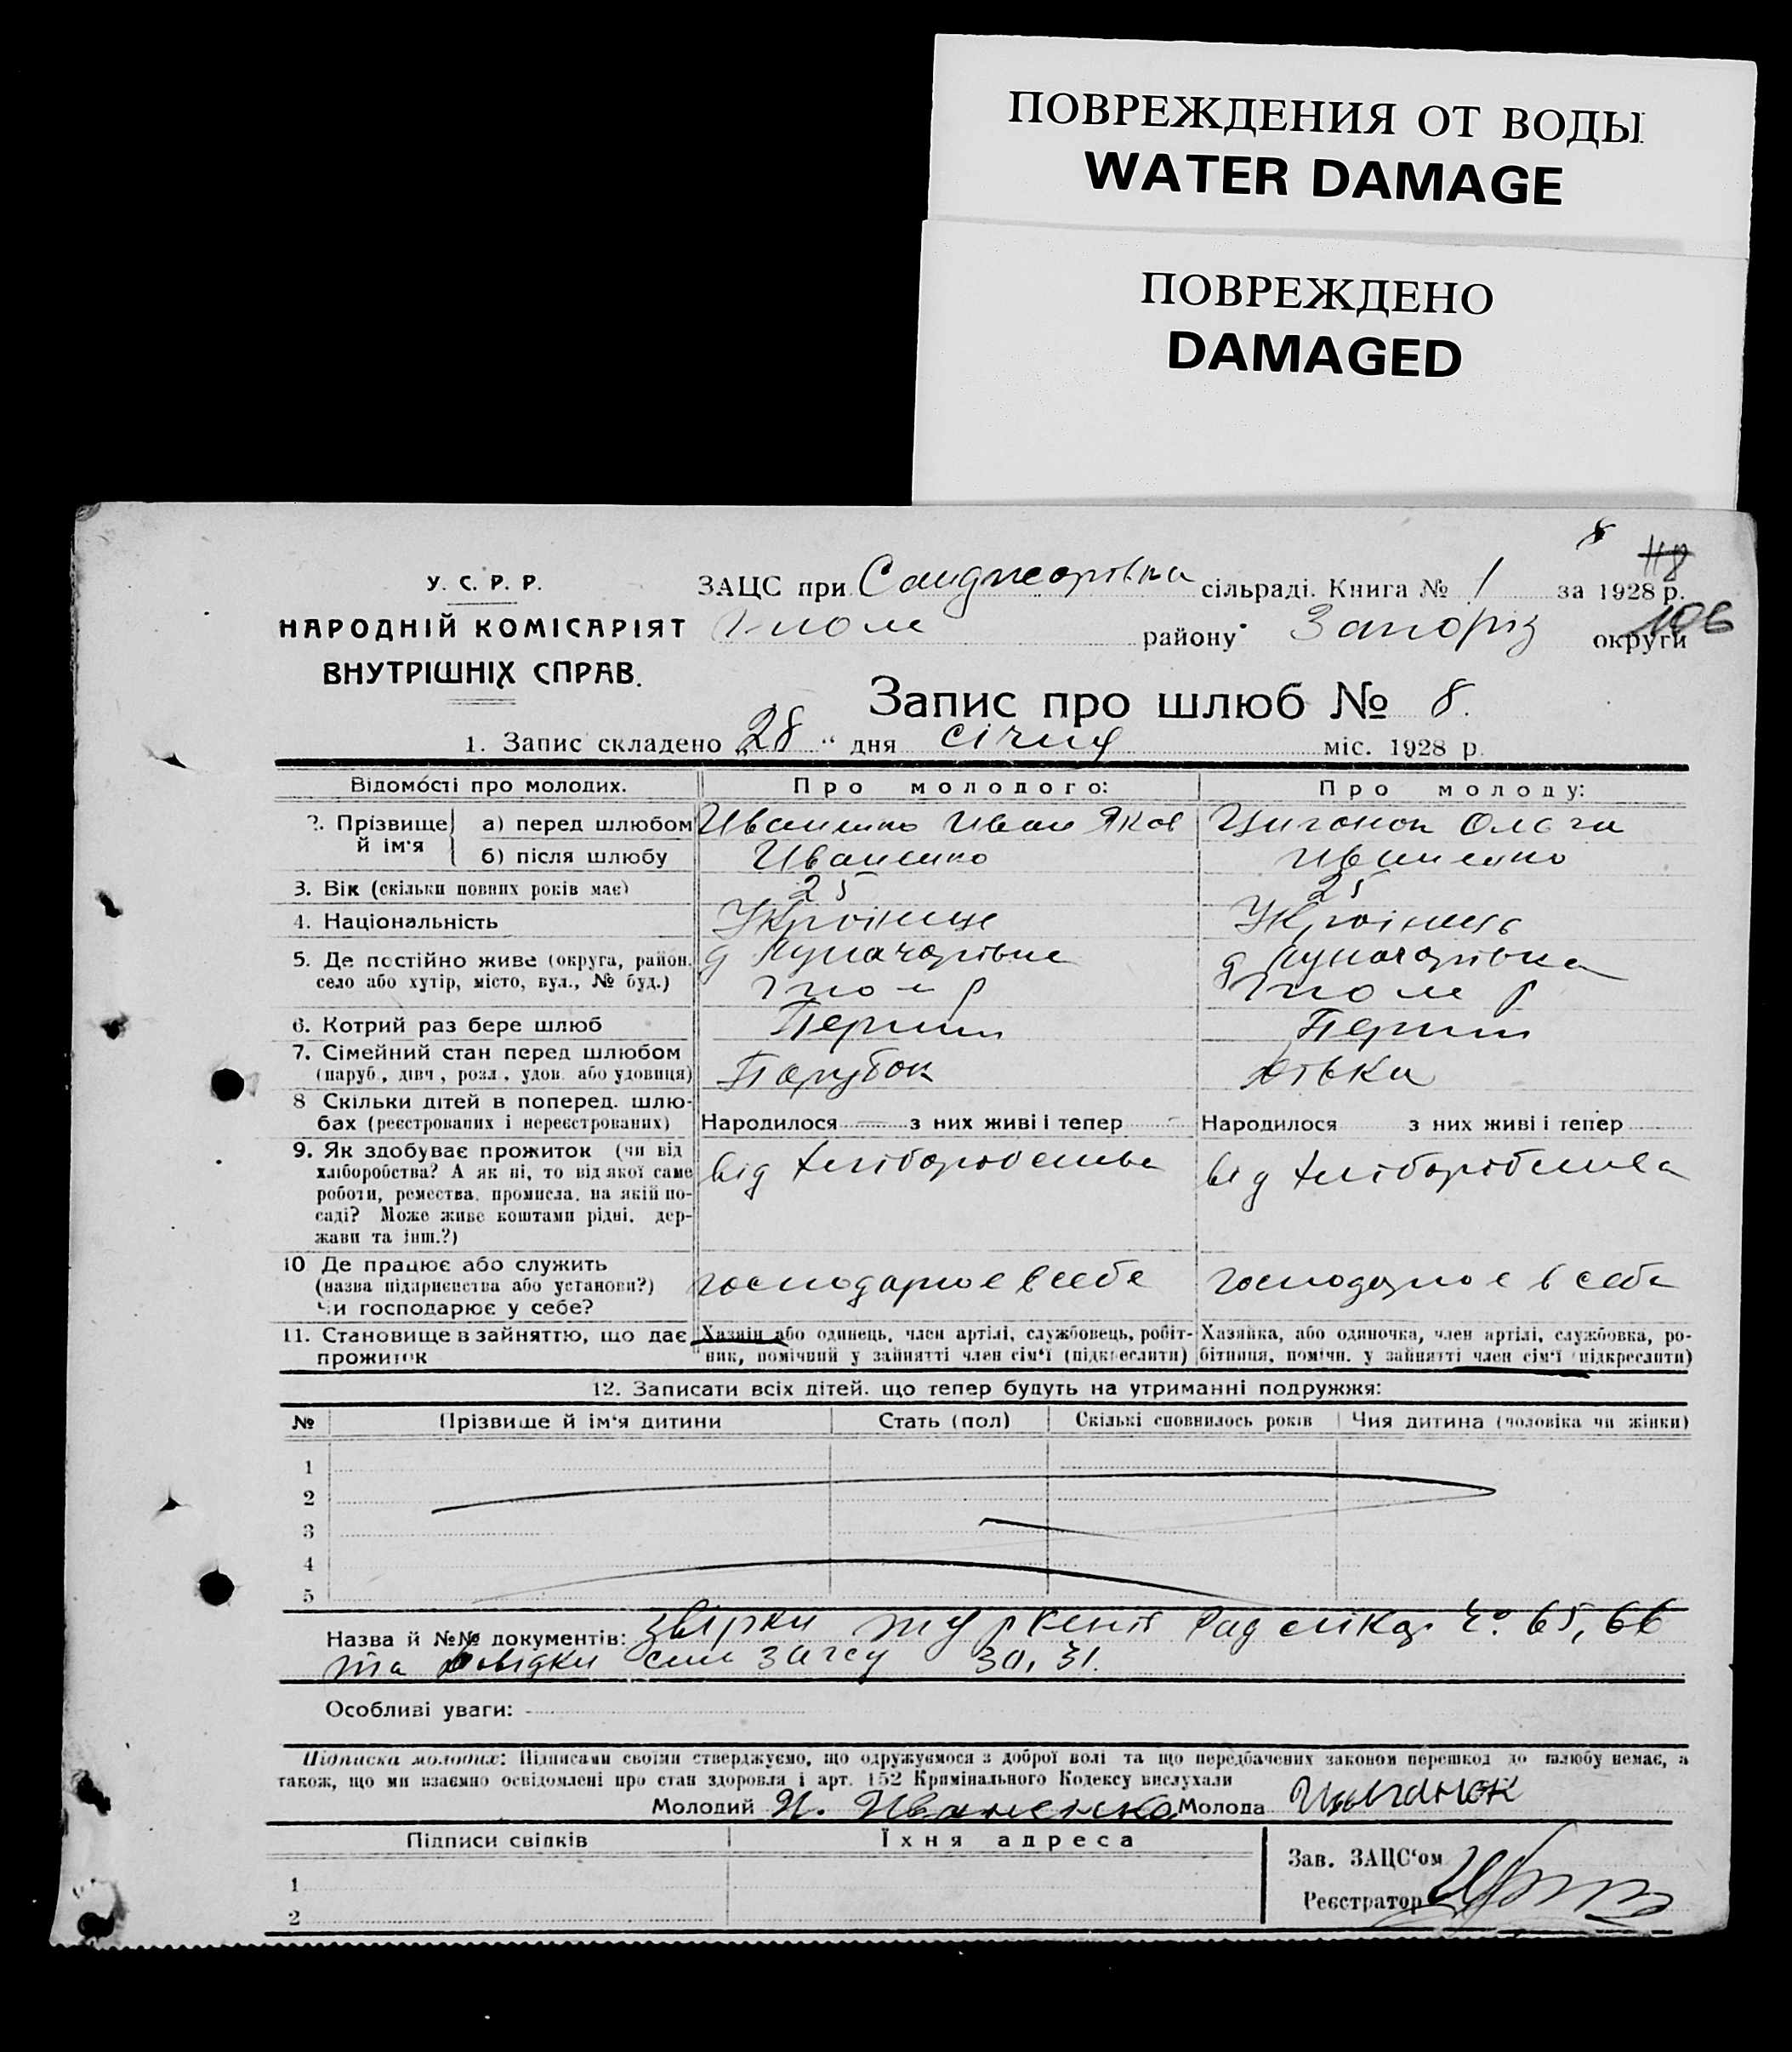 ПОВРЕЖДЕНИЯ ОТ ВОДЫ
WATER DAMAGE
ПОВРЕЖДЕНО
DAMAGED
8
118
106
У. С. Р. Р.
НАРОДНІЙ КОМІСАРІЯТ
ВНУТРІШНІХ СПРАВ.
ЗАЦС при сільраді. Книга № 1 за 1928 р.
району Запоріз округи
Запис про шлюб № 8.
1. Запис складено „28“ дня січня міс. 1928 р.
Відомості про молодих. Про молодого: Про молоду:
2. Прізвище й ім'я а) перед шлюбом Иваненко Иван Яков Циганок Ольга
б) після шлюбу Иваненко Иваненко
3. Вік (скільки повних років має) 25 25
4. Національність Українце Українець
5. Де постійно живе (округа, район, село або хутір, місто, вул., № буд.) д Луначарівка д Луначарівка
6. Котрий раз бере шлюб Перший Перший
7. Сімейний стан перед шлюбом (паруб., дівч., розл., удов. або удовиця) Парубок дівка
8 Скільки дітей в поперед. шлюбах (реєстрованих і нереєстрованих) Народилося — з них живі і тепер Народилося з них живі і тепер
9. Як здобуває прожиток (чи від хліборобства? А як ні, то від якої саме роботи, ремества, промисла, на якій посаді? Може живе коштами рідні, держави та інш.?) від хліборобства від хліборобства
10 Де працює або служить (назва підприємства або установи?) Чи господарює у себе? господарює в себе господарює в себе
11. Становище в зайняттю, що дає прожиток
Хазяін або одинець, член артілі, службовець, робіт-
ник, помічний у зайнятті член сім'ї (підкреслити)
Хазяйка, або одиночка, член артілі, службовка, ро-
бітниця, помічн. у зайнятті член сім'ї (підкреслити)
12. Записати всіх дітей, що тепер будуть на утриманні подружжя:
№ Прізвище й ім'я дитини Стать (пол) Скількі сповнилось років Чия дитина (чоловіка чи жінки)
1
2
3
4
5
Назва й №№ документів: 65, 66
та довідки загсу 30, 31.
Особливі уваги:
Підписка молодих: Підписами своїми стверджуємо, що одружуємося з доброї волі та що передбачених законом перешкод до шлюбу немає, а
також, що ми взаємно освідомлені про стан здоровля і арт. 152 Кримінального Кодексу вислухали
Молодий И. Иваненко Молода Цыганок
Підписи свідків Їхня адреса
Зав. ЗАЦС'ом
Реєстратор
1
2